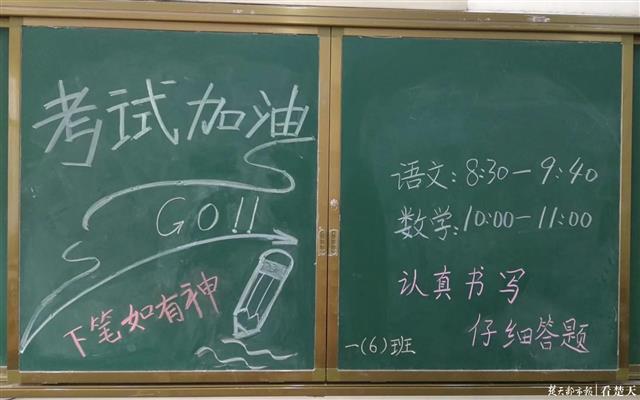 考试加油
GO!!
下笔如有神
语文:8:30—9:40
数学:10:00—11:00
认真书写
仔细答题
一(6)班
楚天都市报|看楚天